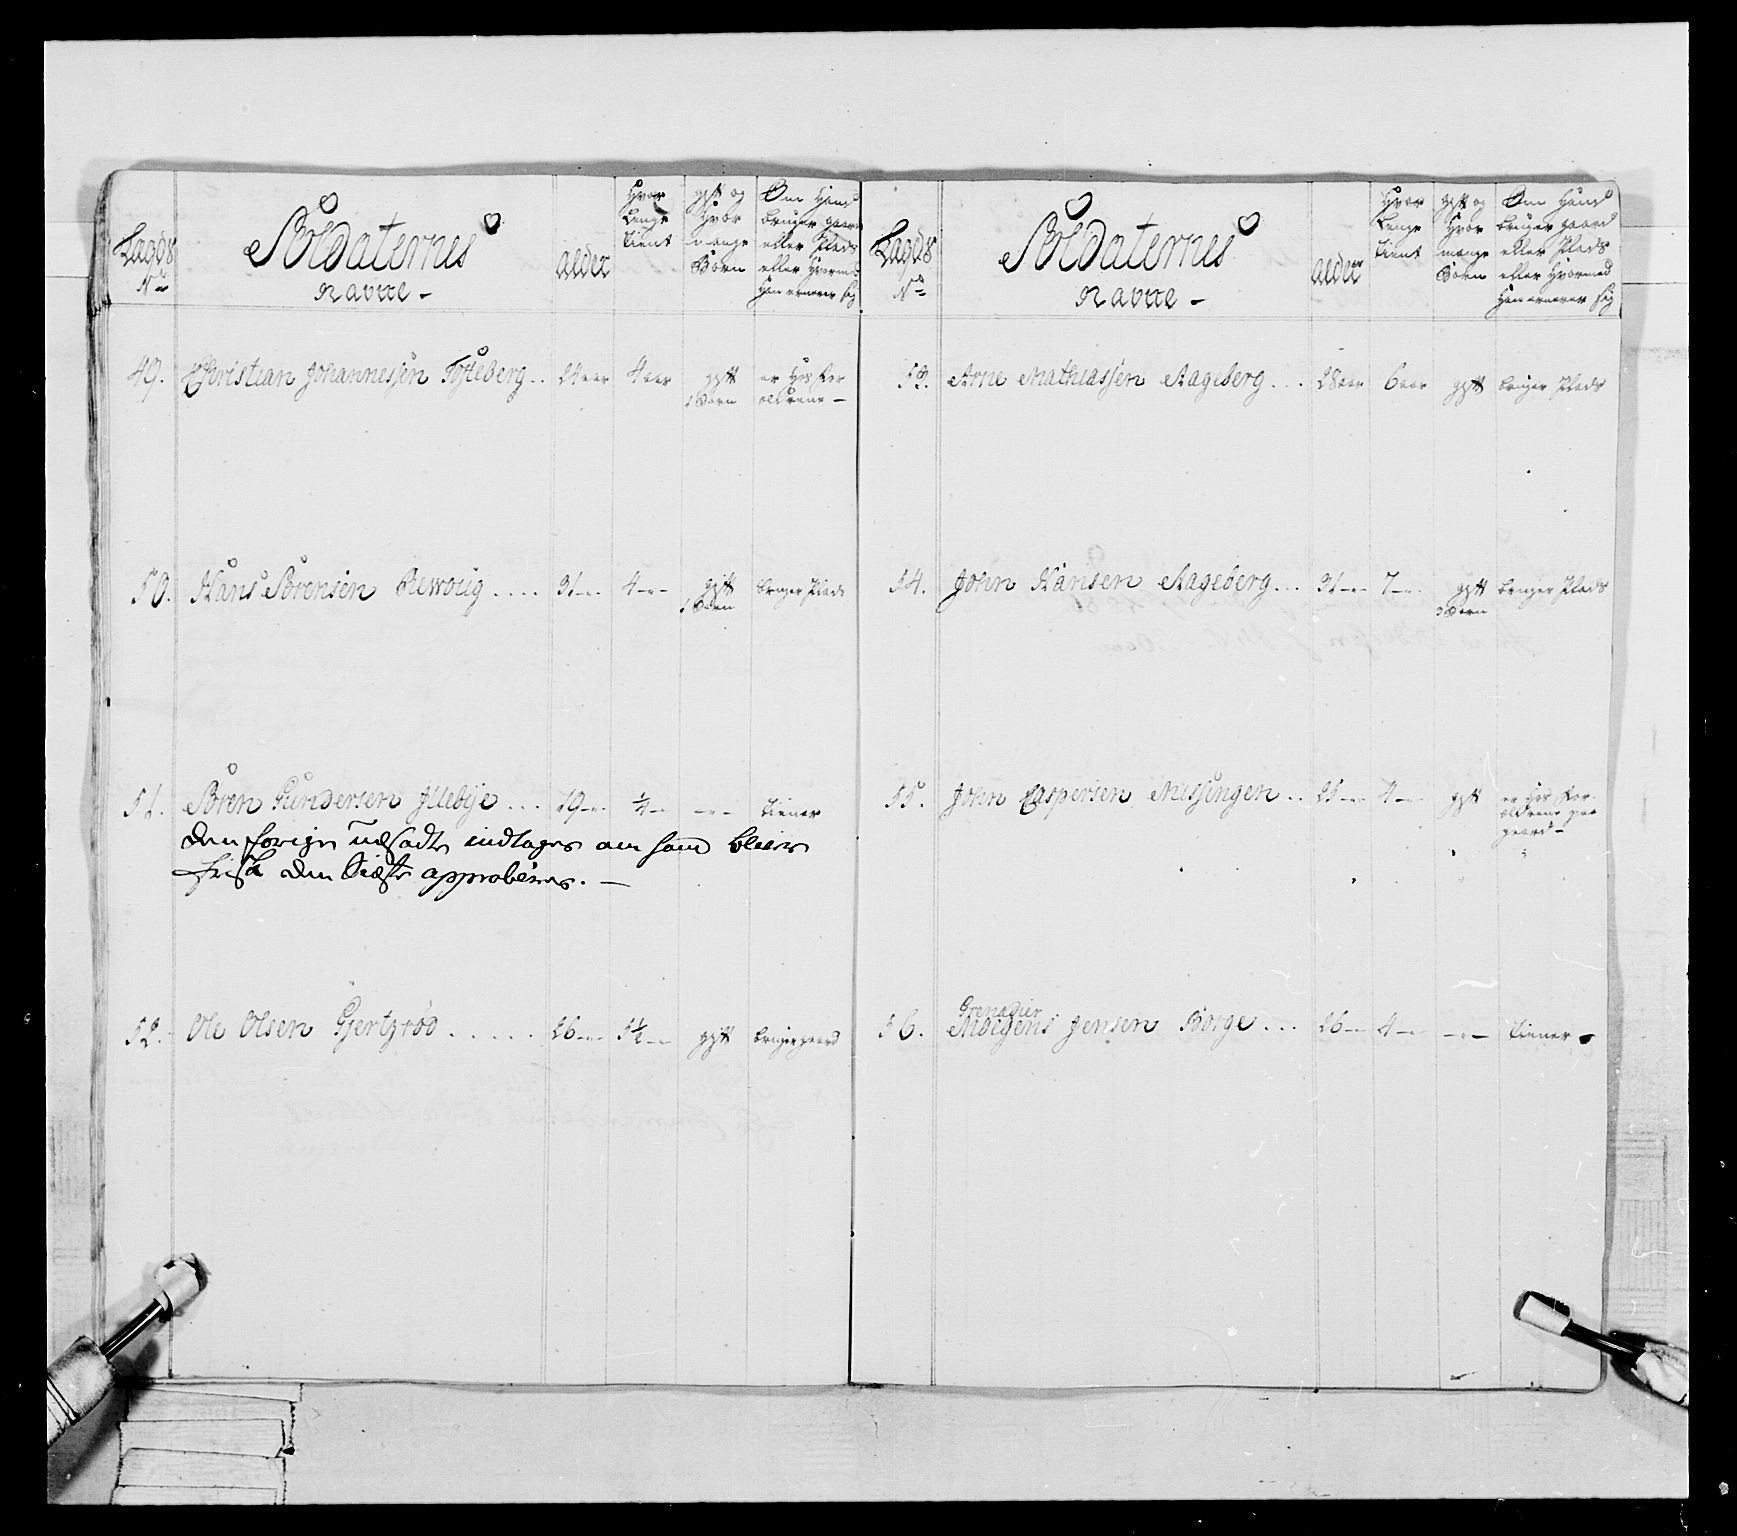 Lagds No
Soldaternes
Navne -
alder
Hvor Lenge tient
gift og Hvor mange Børn
Om Hand bruger gaard eller Plads eller Hvormed Han ernerer sig
49. Christian Johannessen Tofteberg .. 24 aar 4 aar gift er Hos for
1 Børn ældrene -
50. Hans Sørensen Rewoug .... 31 -"- 4 -"- gift bruger Plads
1 Børn
51. Søren Gundersen Jllebye ... 19 -"- ¼ -"- -"- tiener
den forige udsadt indtages om som bliver
frisk den sidste approberes. -
52. Ole Olsen Gjertzrød ..... 26 -"- 5½ -"- gift bruger gaard
Lagds No
Soldaternes
Navne -
alder
Hvor Lenge tient
gift og Hvor mange Børn
Om Hand bruger gaard eller Plads eller Hvormed Han ernerer sig
53. Arne Mathiassen Aageberg ... 28 aar 6 aar gift bruger Plads
54. John Hansen Aageberg ... 31 -"- 7 -"- gift bruger Plads
3 Børn
55. John Caspersen Missingen .. 25 -"- 4 -"- gift er Hos for
ældrene paa
gaard -
Grenadier
56. Moegens Jensen Borge ... 26 -"- 4 -"- -"- tiener -